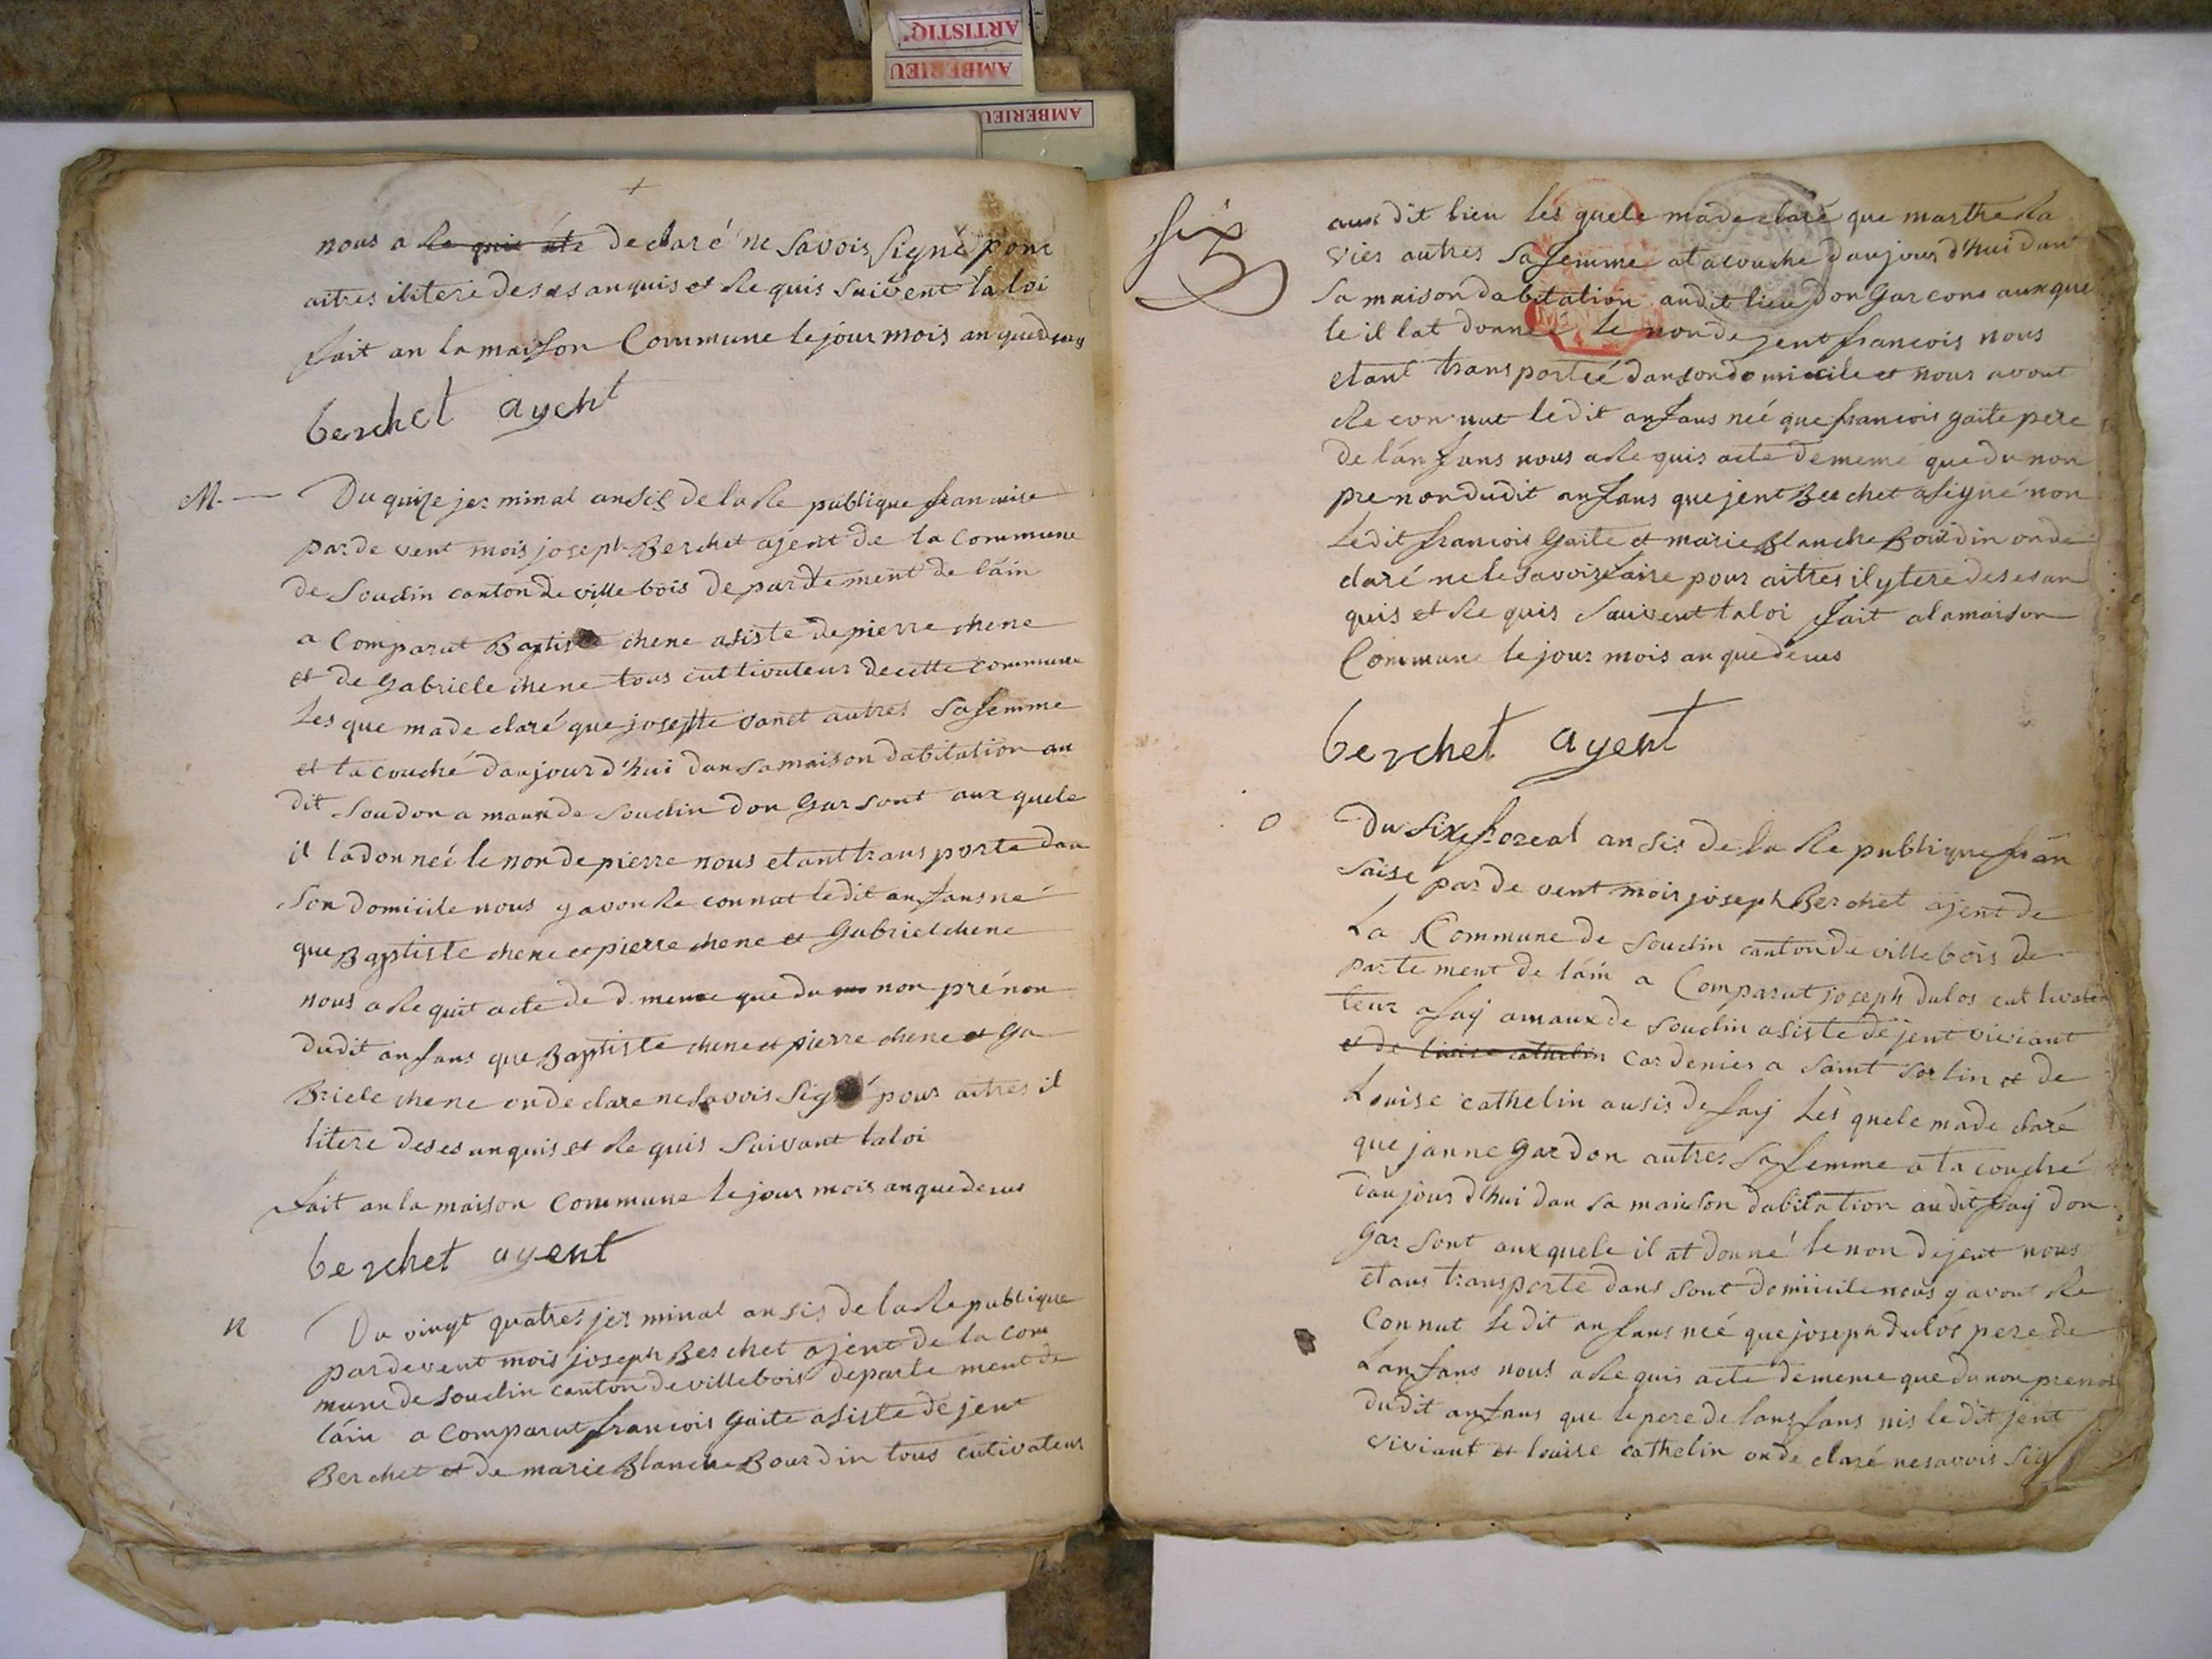 ARTISTIQ
AMBERIEU
AMBERIEU
nous a Re quis ate declaré ne Savois Signé pour
aitres ilitere deses anquis et Requis Suivent laloi
fait an la maison Commune le jour mois an quedesus
berchet agent
M. Du quize jer minal ansis de la Re publique franaise
par de vent mois joseph Berchet ajent de la Commune
de Soudin canton de ville bois departement de láin
a Comparut Baptiste chene asiste de pierre chene
et de Gabriele chene tous cultivateur de cette commune
Les que made claré que josephte vanet autres Sa femme
et tacouché daujourd'hui dan Sa maison dabitation au
dit Soudon a maux de Soudin don Garsont aux quele
il ladonneé le non de pierre nous etant transporte dan
Son domicile nous y avon Re connut le dit anfans né
que Baptiste chene et pierre chene et Gabriel chene
nous a Re quit acte de d meme que du no non prénon
dudit anfans que Baptiste chene et pierre chene et Ga
Briele chene on declare ne Savois Signé pour aitres il
litere deses anquis et Re quis Suivant laloi
fait an la maison Commune le jour mois an que desus
berchet agent
N Du vingt quatres jer minal an sis de la Re publique
pardevent mois joseph Berchet ajent de la Com
mune de Soudin canton de villebois departe ment de
láin a Comparut francois Gaite asiste de jent
Berchet et de marie Blanche Bourdin tous cutivateur
six
aux dit lieu Les quele made claré que marthe La
vies autres Sa femme at acouche daujour d'hui dant
Sa maison dabitation audit lieu don Garcons aux que
le il lat donnee Le non de jent francois nous
etant transporteé dan Son domicile et nous avont
Re con nut le dit anfans neé que francois gaite pere
de lánfans nous a Re quis acte de meme que du non
prenon dudit anfans que jent Berchet a Signé non
Ledit francois Gaite et marie Blanche Bourdin on de
claré ne le Savoir faire pour aitres ilytere de ses an
quis et Re quis Sauivent laloi fait a la maison
Commune le jour mois an que desus
berchet agent
O Du Sixe floreal an sis de la Re publique frân
saise par de vent mois joseph Berchet ajent de
La Commune de Soudin canton de villebois de
parte ment de láin a Comparut joseph dulos cultivate
teur a fay amaux de Soudin asiste de jent viviant
et de louise cathelin cardenier a saint Sorlin et de
Louise cathelin ausis de fay Lès quele made claré
que janne Gardon autres Sa femme a ta couché
daujour d'hui dan Sa maison dabitation au dit fay don
Gar Sont aux quele il at donné le non dejent nous
etans transporte dans Sont domicile nous y avont Re
Connut Le dit anfans neé que joseph dulos pere de
Lanfans nous a Re quis acte de meme que du non prenon
dudit anfans que le pere de lans fans nis le dit jent
viviant et louise cathelin on de claré ne savois Sig